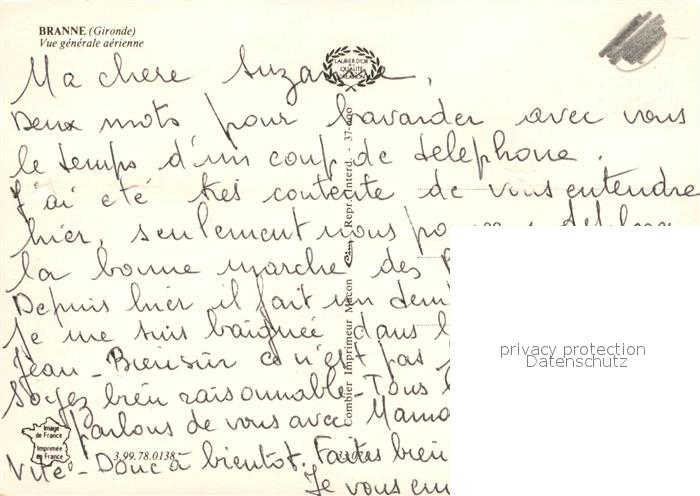 BRANNE (Gironde)
Vue générale aérienne
LAURIER D'OR
DE LA
QUALITÉ
CRÉATION
Ma chère Suzanne,
Deux mots pour bavarder avec vous
le temps d'un coup de telephone.
J'ai été très contente de vous entendre
hier, seulement nous
la bonne marche des
Depuis hier il fait un
je me suis baignée dans
Jean - Bien sûr ce n'est pas
Soyez bien raisonnable - Tous
parlons de vous avec
Vite - Donc à bientot. Faites bien
Je vous
Combier Imprimeur Macon Cim Repr. Interd. - 37-400
Image
de France
Imprimée
en France
3.99.78.0138
privacy protection
Datenschutz